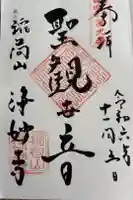 奉拝
令和六年
十一月五日
聖観世音
浄妙寺